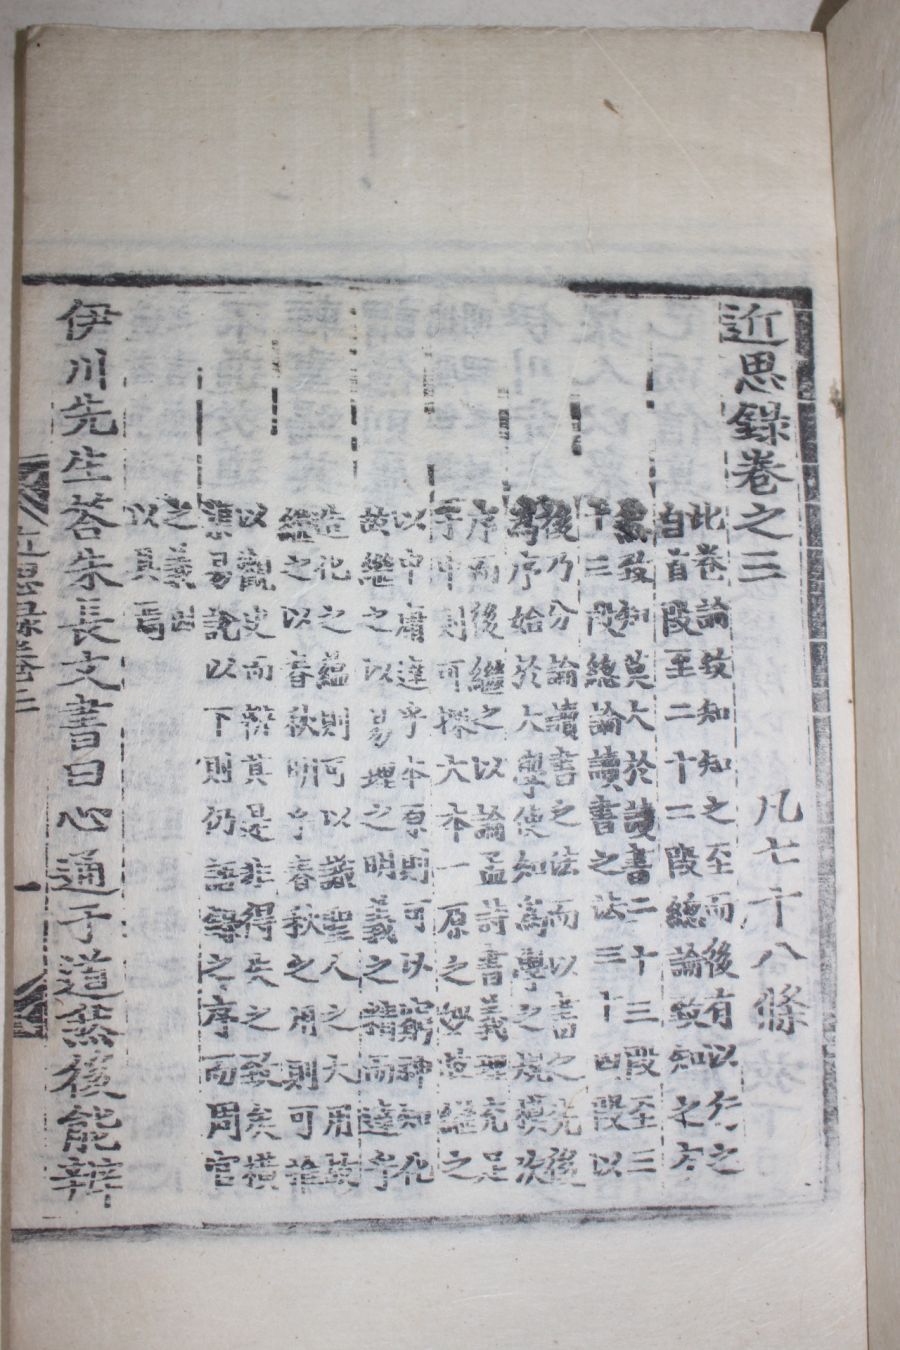 近思錄卷之三　凡七十八條
此卷論致知知之至而後有以行之
自首段至二十二段總論致知之方
然致知莫大於讀書二十三段至三
十三段總論讀書之法三十四段以
後乃分論讀書之法而以書之先後
爲序始於大學使知爲學之規模次
序而後繼之以論孟詩書義理充足
于中則可探大本一原之妙故繼之
以中庸達乎本原則可以窮神知化
故繼之以易理之明義之精而達乎
造化之蘊則可以識聖人之大用故
繼之以春秋明乎春秋之用則可推
以觀史而辨其是非得失之致矣橫
渠易說以下則仍語錄之序而周官
之義因
以具焉
伊川先生荅朱長文書曰心通乎道然後能辨
近思錄卷三　一